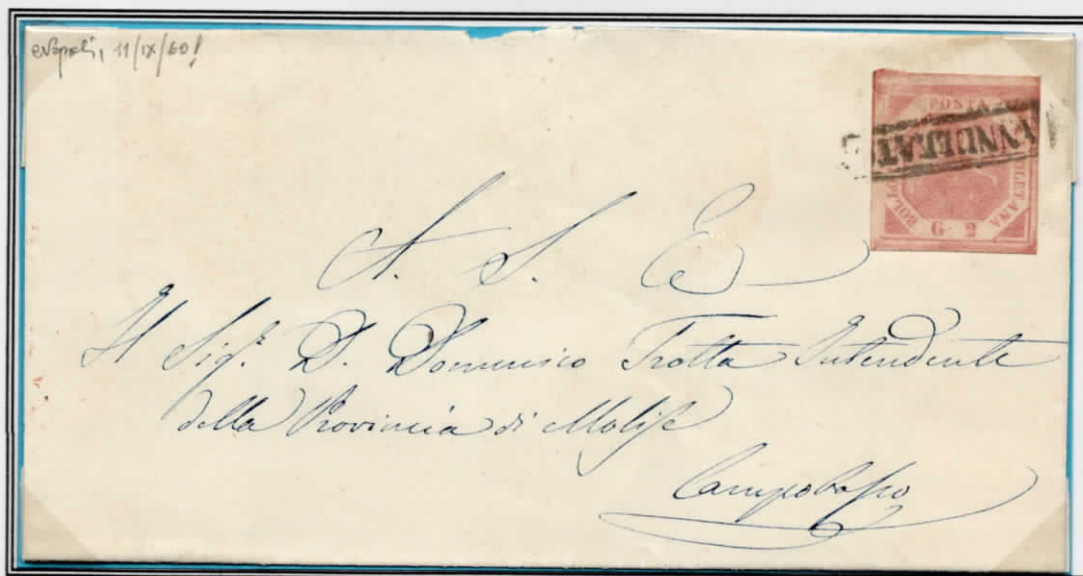 Napoli, 11/IX/60!
POSTA
BOLLO
G. 2
ANNULLATO
A. S. E.
Il Sig.r D. Domenico Trotta Intendente
della Provincia di Molise
Campobasso